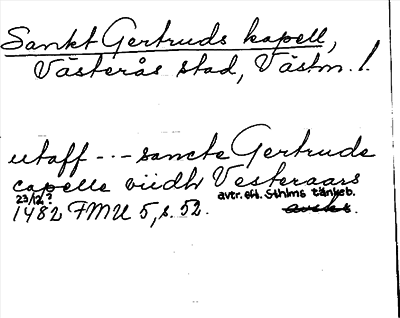 Sankt Gertruds kapell,
Västerås stad, Västm. l.
utaff --- sancte Gertrude
capelle viidh Vesteraars
23/12? avtr. efl. Sthlms tänkeb.
1482 FMU 5, s. 52.